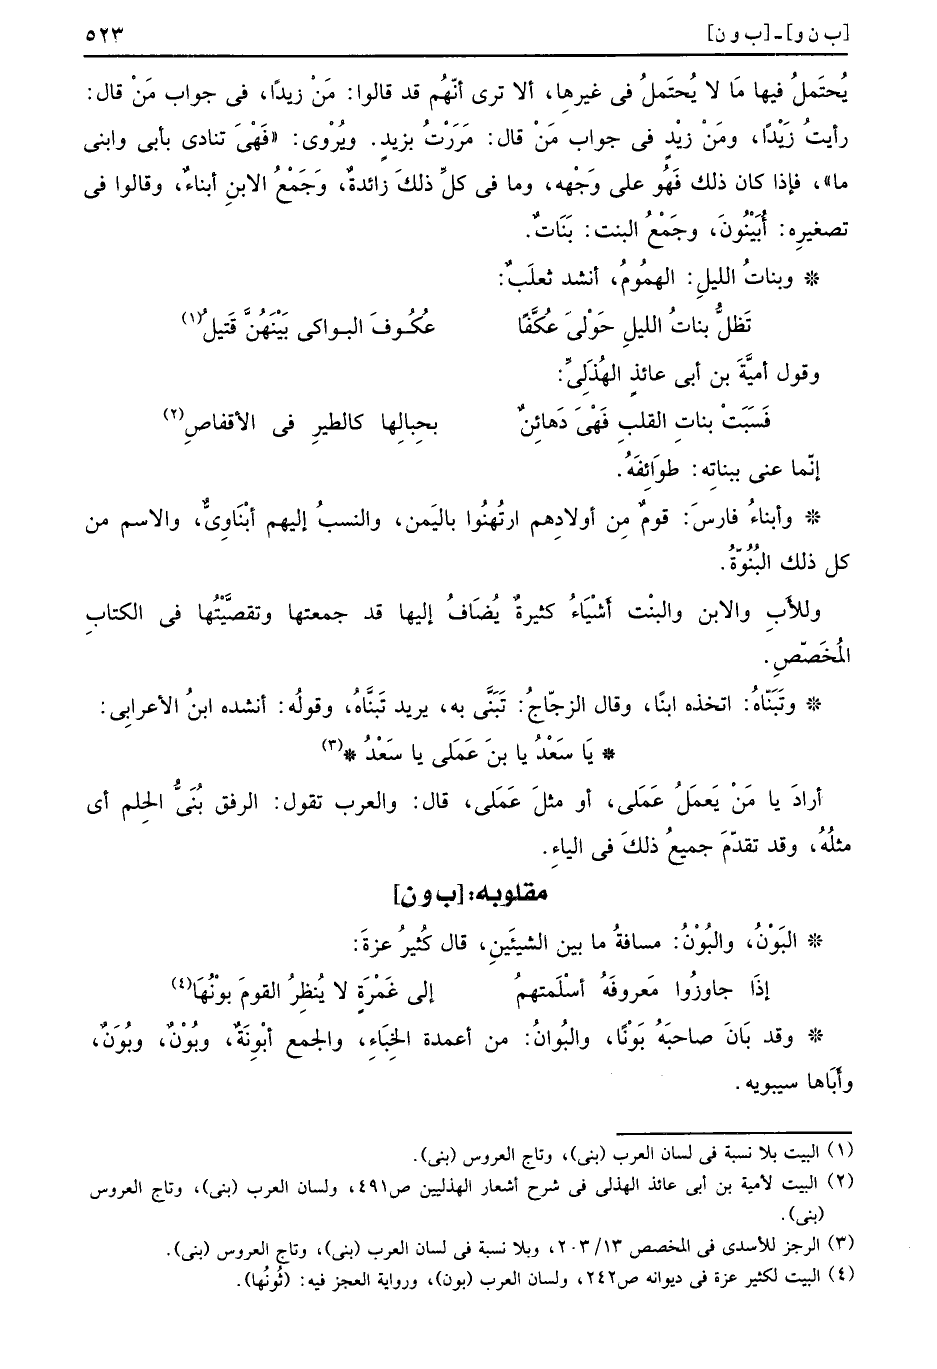 [ب ن و] - [ب و ن] ٥٢٣
يُحتَملُ فيها مَا لا يُحتَملُ فى غيرِها، ألا ترى أنّهُم قد قالوا: مَنْ زيدًا، فى جواب مَنْ قال:
رأيتُ زَيْدًا، ومَنْ زيْدٍ فى جواب مَنْ قال: مَرَرْتُ بزيدٍ. ويُرْوى: «فَهْىَ تنادى بأبى وابنى
ما»، فإذا كان ذلك فَهُو على وَجْهه، وما فى كلِّ ذلكَ زائدةٌ، وَجَمْعُ الابنِ أبناءٌ، وقالوا فى
تصغيرِه: أُبَيْنُونَ، وجَمْعُ البنت: بَنَاتٌ.
* وبناتُ الليلِ: الهمُومُ، أنشد ثعلَبٌ:
تَظلُّ بناتُ الليلِ حَوْلىَ عكَّفًا عكُـوفَ البـواكى بَيْنَهُنَّ قَتيلُ(١)
وقول أميَّةَ بن أبى عائذٍ الهُذَلِىِّ:
فَسَبَتْ بناتِ القلبِ فَهْىَ دَهائنٌ بحِبالِها كالطيرِ فى الأقفاصِ(٢)
إنّما عنى ببناتِه: طوَائفَهُ.
* وأبناءُ فارسَ: قومٌ مِن أولادِهم ارتُهنُوا باليَمن، والنسبُ إليهم أبْنَاوِىٌّ، والاسم من
كل ذلك البُنُوّةُ.
وللأبِ والابن والبنْت أشْيَاءُ كثيرةٌ يُضَافُ إليها قد جمعتها وتقصَّيْتُها فى الكتابِ
المُخَصّصِ.
* وتَبَنّاهُ: اتخذه ابنًا، وقال الزجّاجُ: تَبَنَّى به، يريد تَبنَّاهُ، وقولُه: أنشده ابنُ الأعرابِى:
* يَا سَعْدُ يا بنَ عَمَلى يا سَعْدُ *(٣)
أرادَ يا مَنْ يَعمَلُ عَمَلى، أو مثلَ عَمَلى، قال: والعرب تقول: الرفق بُنَىُّ الحِلم أى
مثلُهُ، وقد تقدّمَ جميعُ ذلكَ فى الياءِ.
مقلوبه: [ب و ن]
* البَوْنُ، والبُوْنُ: مسافةُ ما بين الشيئَينِ، قال كُثَيرُ عزةَ:
إذَا جاوزُوا مَعروفَهُ أسْلَمتهمُ إلى غَمْرَةٍ لا يُنظِرُ القومَ بونُهَا(٤)
* وقد بَانَ صاحبَهُ بَوْنًا، والبُوانُ: من أعمدة الخِبَاءِ، والجمع أبْوِنَةٌ، وبُوْنٌ، وبُوَنٌ،
وأبَاها سيبويه.
(١) البيت بلا نسبة فى لسان العرب (بنى)، وتاج العروس (بنى).
(٢) البيت لأمية بن أبى عائذ الهذلى فى شرح أشعار الهذليين ص٤٩١، ولسان العرب (بنى)، وتاج العروس
(بنى).
(٣) الرجز للأسدى فى المخصص ٢٠٣/١٣، وبلا نسبة فى لسان العرب (بنى)، وتاج العروس (بنى).
(٤) البيت لكثير عزة فى ديوانه ص٢٤٢، ولسان العرب (بون)، ورواية العجز فيه: (ثُونُها).